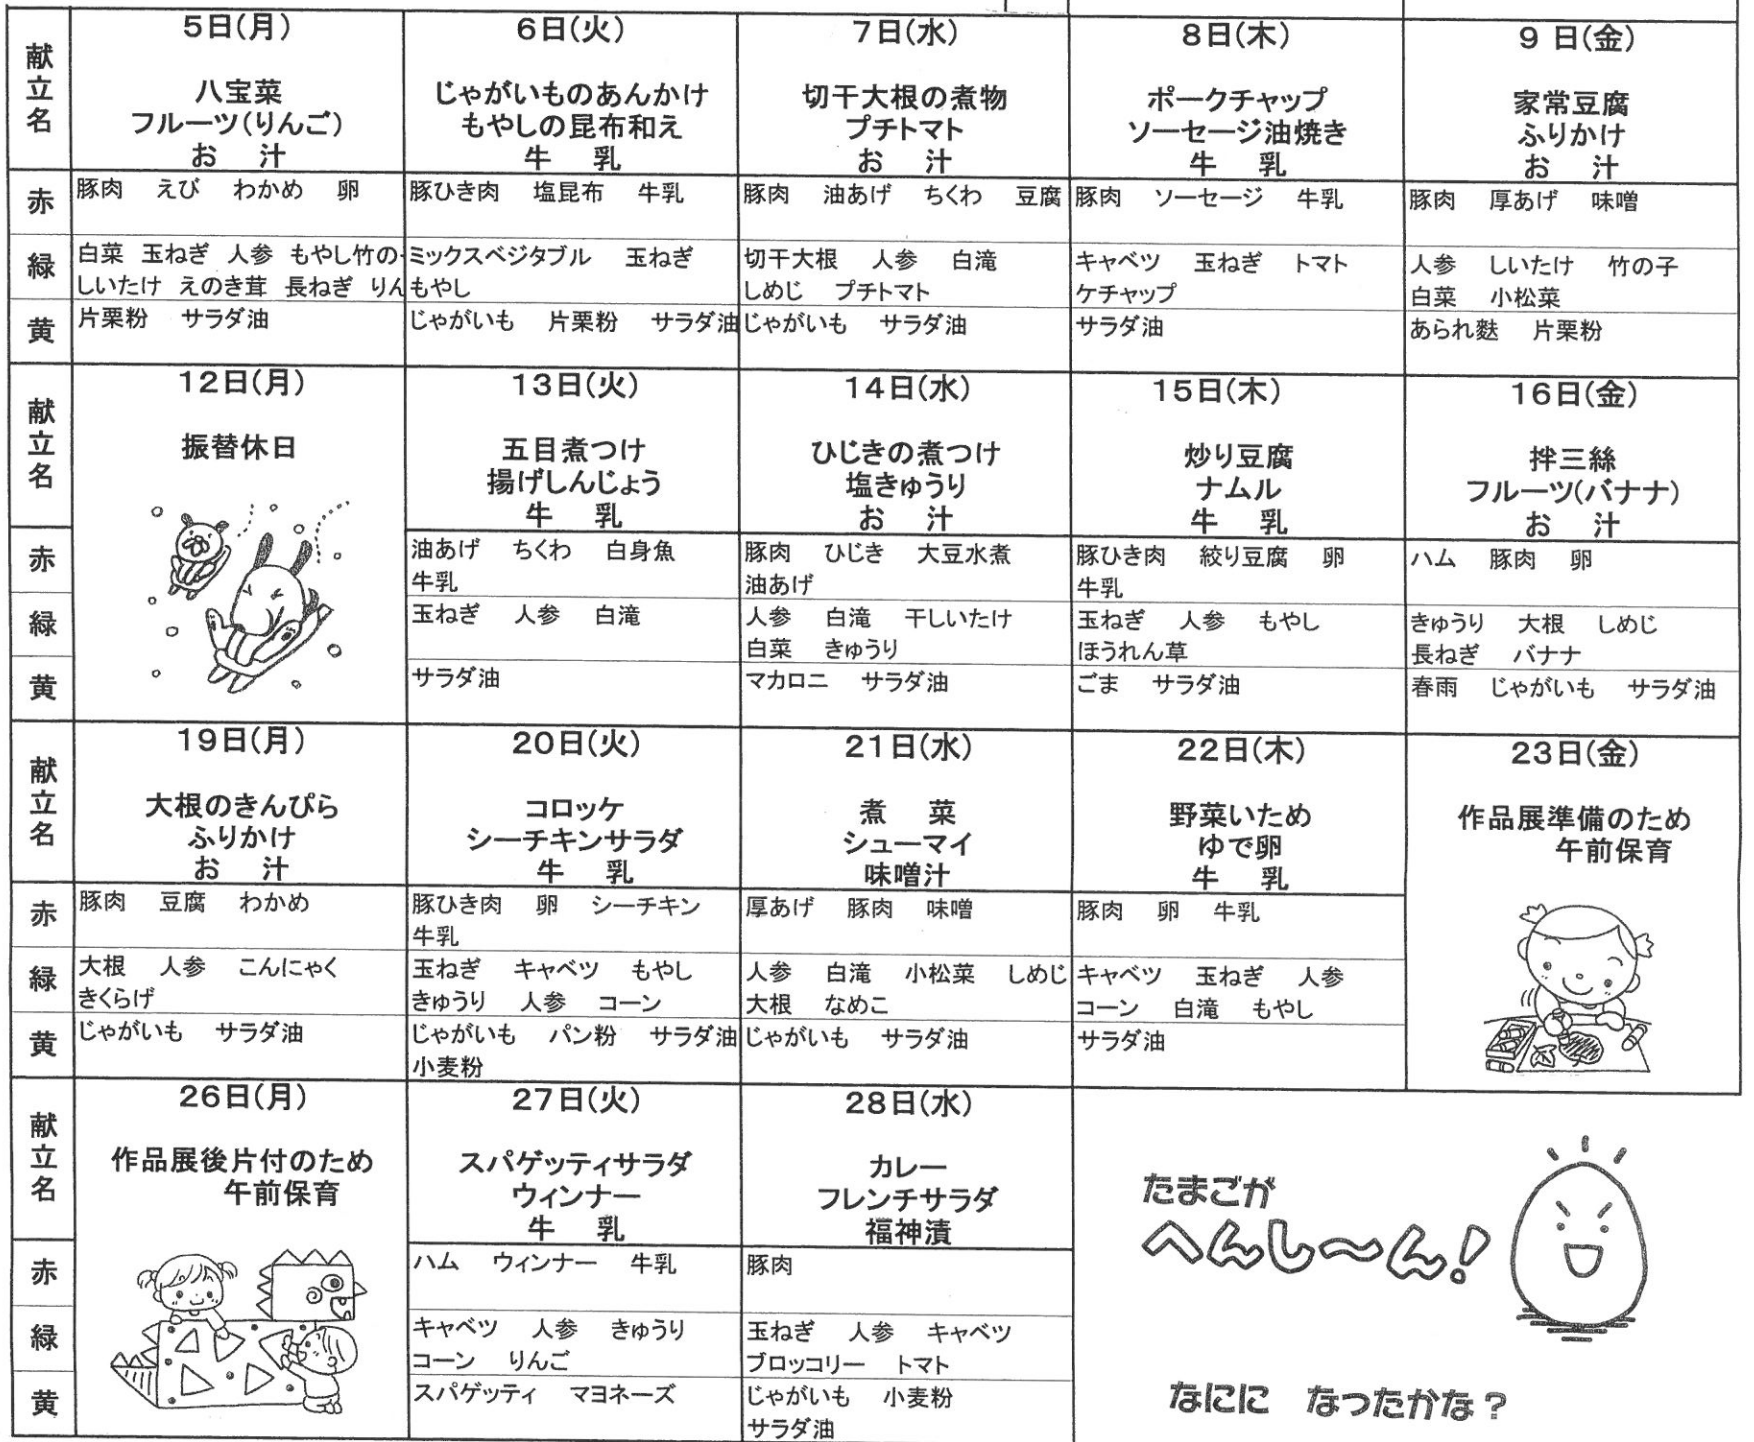 献立名
5日(月)
八宝菜
フルーツ(りんご)
お 汁
6日(火)
じゃがいものあんかけ
もやしの昆布和え
牛 乳
7日(水)
切干大根の煮物
プチトマト
お 汁
8日(木)
ポークチャップ
ソーセージ油焼き
牛 乳
9 日(金)
家常豆腐
ふりかけ
お 汁
赤
豚肉 えび わかめ 卵
豚ひき肉 塩昆布 牛乳
豚肉 油あげ ちくわ 豆腐
豚肉 ソーセージ 牛乳
豚肉 厚あげ 味噌
緑
白菜 玉ねぎ 人参 もやし 竹の
しいたけ えのき茸 長ねぎ りん
ミックスベジタブル 玉ねぎ
もやし
切干大根 人参 白滝
しめじ プチトマト
キャベツ 玉ねぎ トマト
ケチャップ
人参 しいたけ 竹の子
白菜 小松菜
黄
片栗粉 サラダ油
じゃがいも 片栗粉 サラダ油
じゃがいも サラダ油
サラダ油
あられ麩 片栗粉
献立名
12日(月)
振替休日
13日(火)
五目煮つけ
揚げしんじょう
牛 乳
14日(水)
ひじきの煮つけ
塩きゅうり
お 汁
15日(木)
炒り豆腐
ナムル
牛 乳
16日(金)
拌三絲
フルーツ(バナナ)
お 汁
赤
油あげ ちくわ 白身魚
牛乳
豚肉 ひじき 大豆水煮
油あげ
豚ひき肉 絞り豆腐 卵
牛乳
ハム 豚肉 卵
緑
玉ねぎ 人参 白滝
人参 白滝 干しいたけ
白菜 きゅうり
玉ねぎ 人参 もやし
ほうれん草
きゅうり 大根 しめじ
長ねぎ バナナ
黄
サラダ油
マカロニ サラダ油
ごま サラダ油
春雨 じゃがいも サラダ油
献立名
19日(月)
大根のきんぴら
ふりかけ
お 汁
20日(火)
コロッケ
シーチキンサラダ
牛 乳
21日(水)
煮 菜
シューマイ
味噌汁
22日(木)
野菜いため
ゆで卵
牛 乳
23日(金)
作品展準備のため
午前保育
赤
豚肉 豆腐 わかめ
豚ひき肉 卵 シーチキン
牛乳
厚あげ 豚肉 味噌
豚肉 卵 牛乳
緑
大根 人参 こんにゃく
きくらげ
玉ねぎ キャベツ もやし
きゅうり 人参 コーン
人参 白滝 小松菜 しめじ
大根 なめこ
キャベツ 玉ねぎ 人参
コーン 白滝 もやし
黄
じゃがいも サラダ油
じゃがいも パン粉 サラダ油
小麦粉
じゃがいも サラダ油
サラダ油
献立名
26日(月)
作品展後片付のため
午前保育
27日(火)
スパゲッティサラダ
ウィンナー
牛 乳
28日(水)
カレー
フレンチサラダ
福神漬
赤
ハム ウィンナー 牛乳
豚肉
緑
キャベツ 人参 きゅうり
コーン りんご
玉ねぎ 人参 キャベツ
ブロッコリー トマト
黄
スパゲッティ マヨネーズ
じゃがいも 小麦粉
サラダ油
たまごが
へんし〜ん!
なにに なったかな?